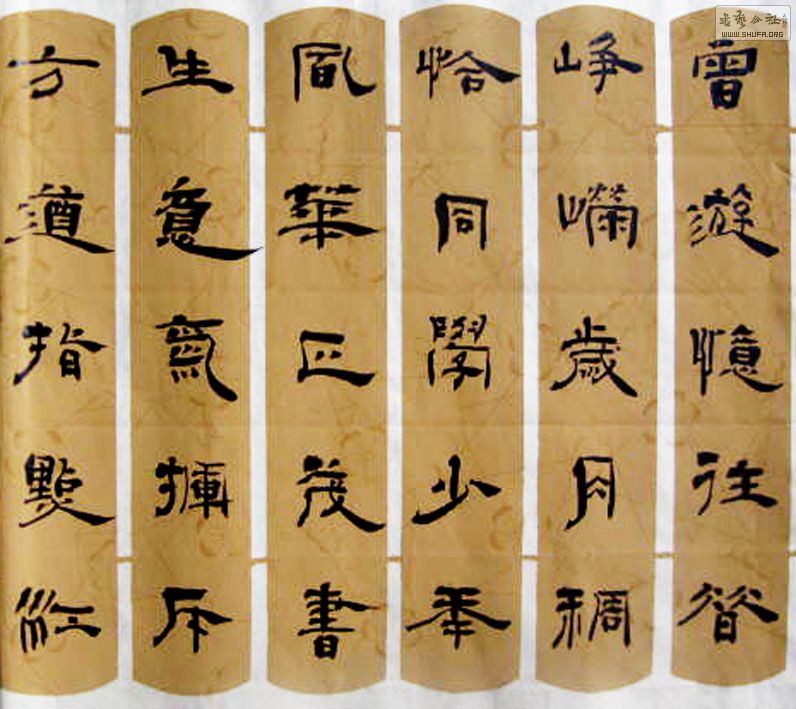 曾游憶往昔
崢嶸歲月稠
恰同學少年
風華正茂書
生意氣揮斥
方遒指點江
书艺公社
WWW.SHUFA.ORG